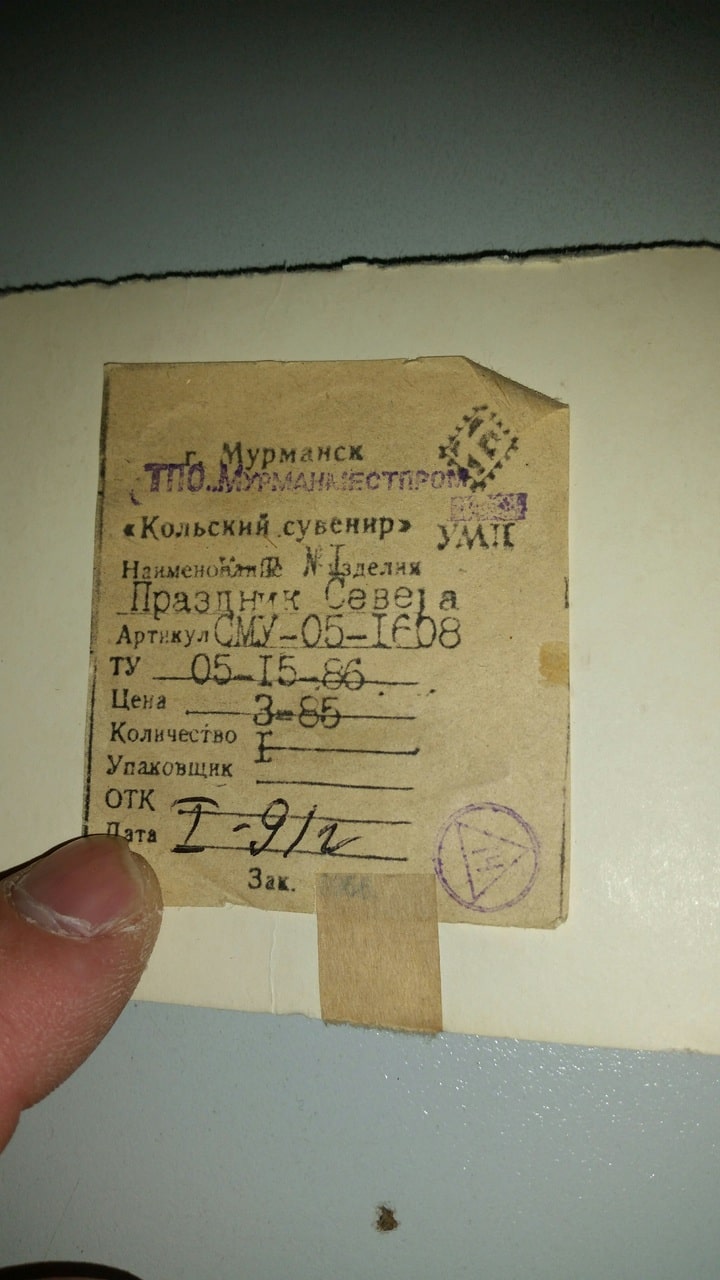 г. Мурманск
ТПО„МУРМАНМЕСТПРОМ
«Кольский сувенир»
УМП
Наименование изделия
№I
Праздник Севера
Артикул СМУ-05-I608
ТУ 05-I5-86
Цена 3-85
Количество I
Упаковщик
ОТК
Дата I-91г
Зак.